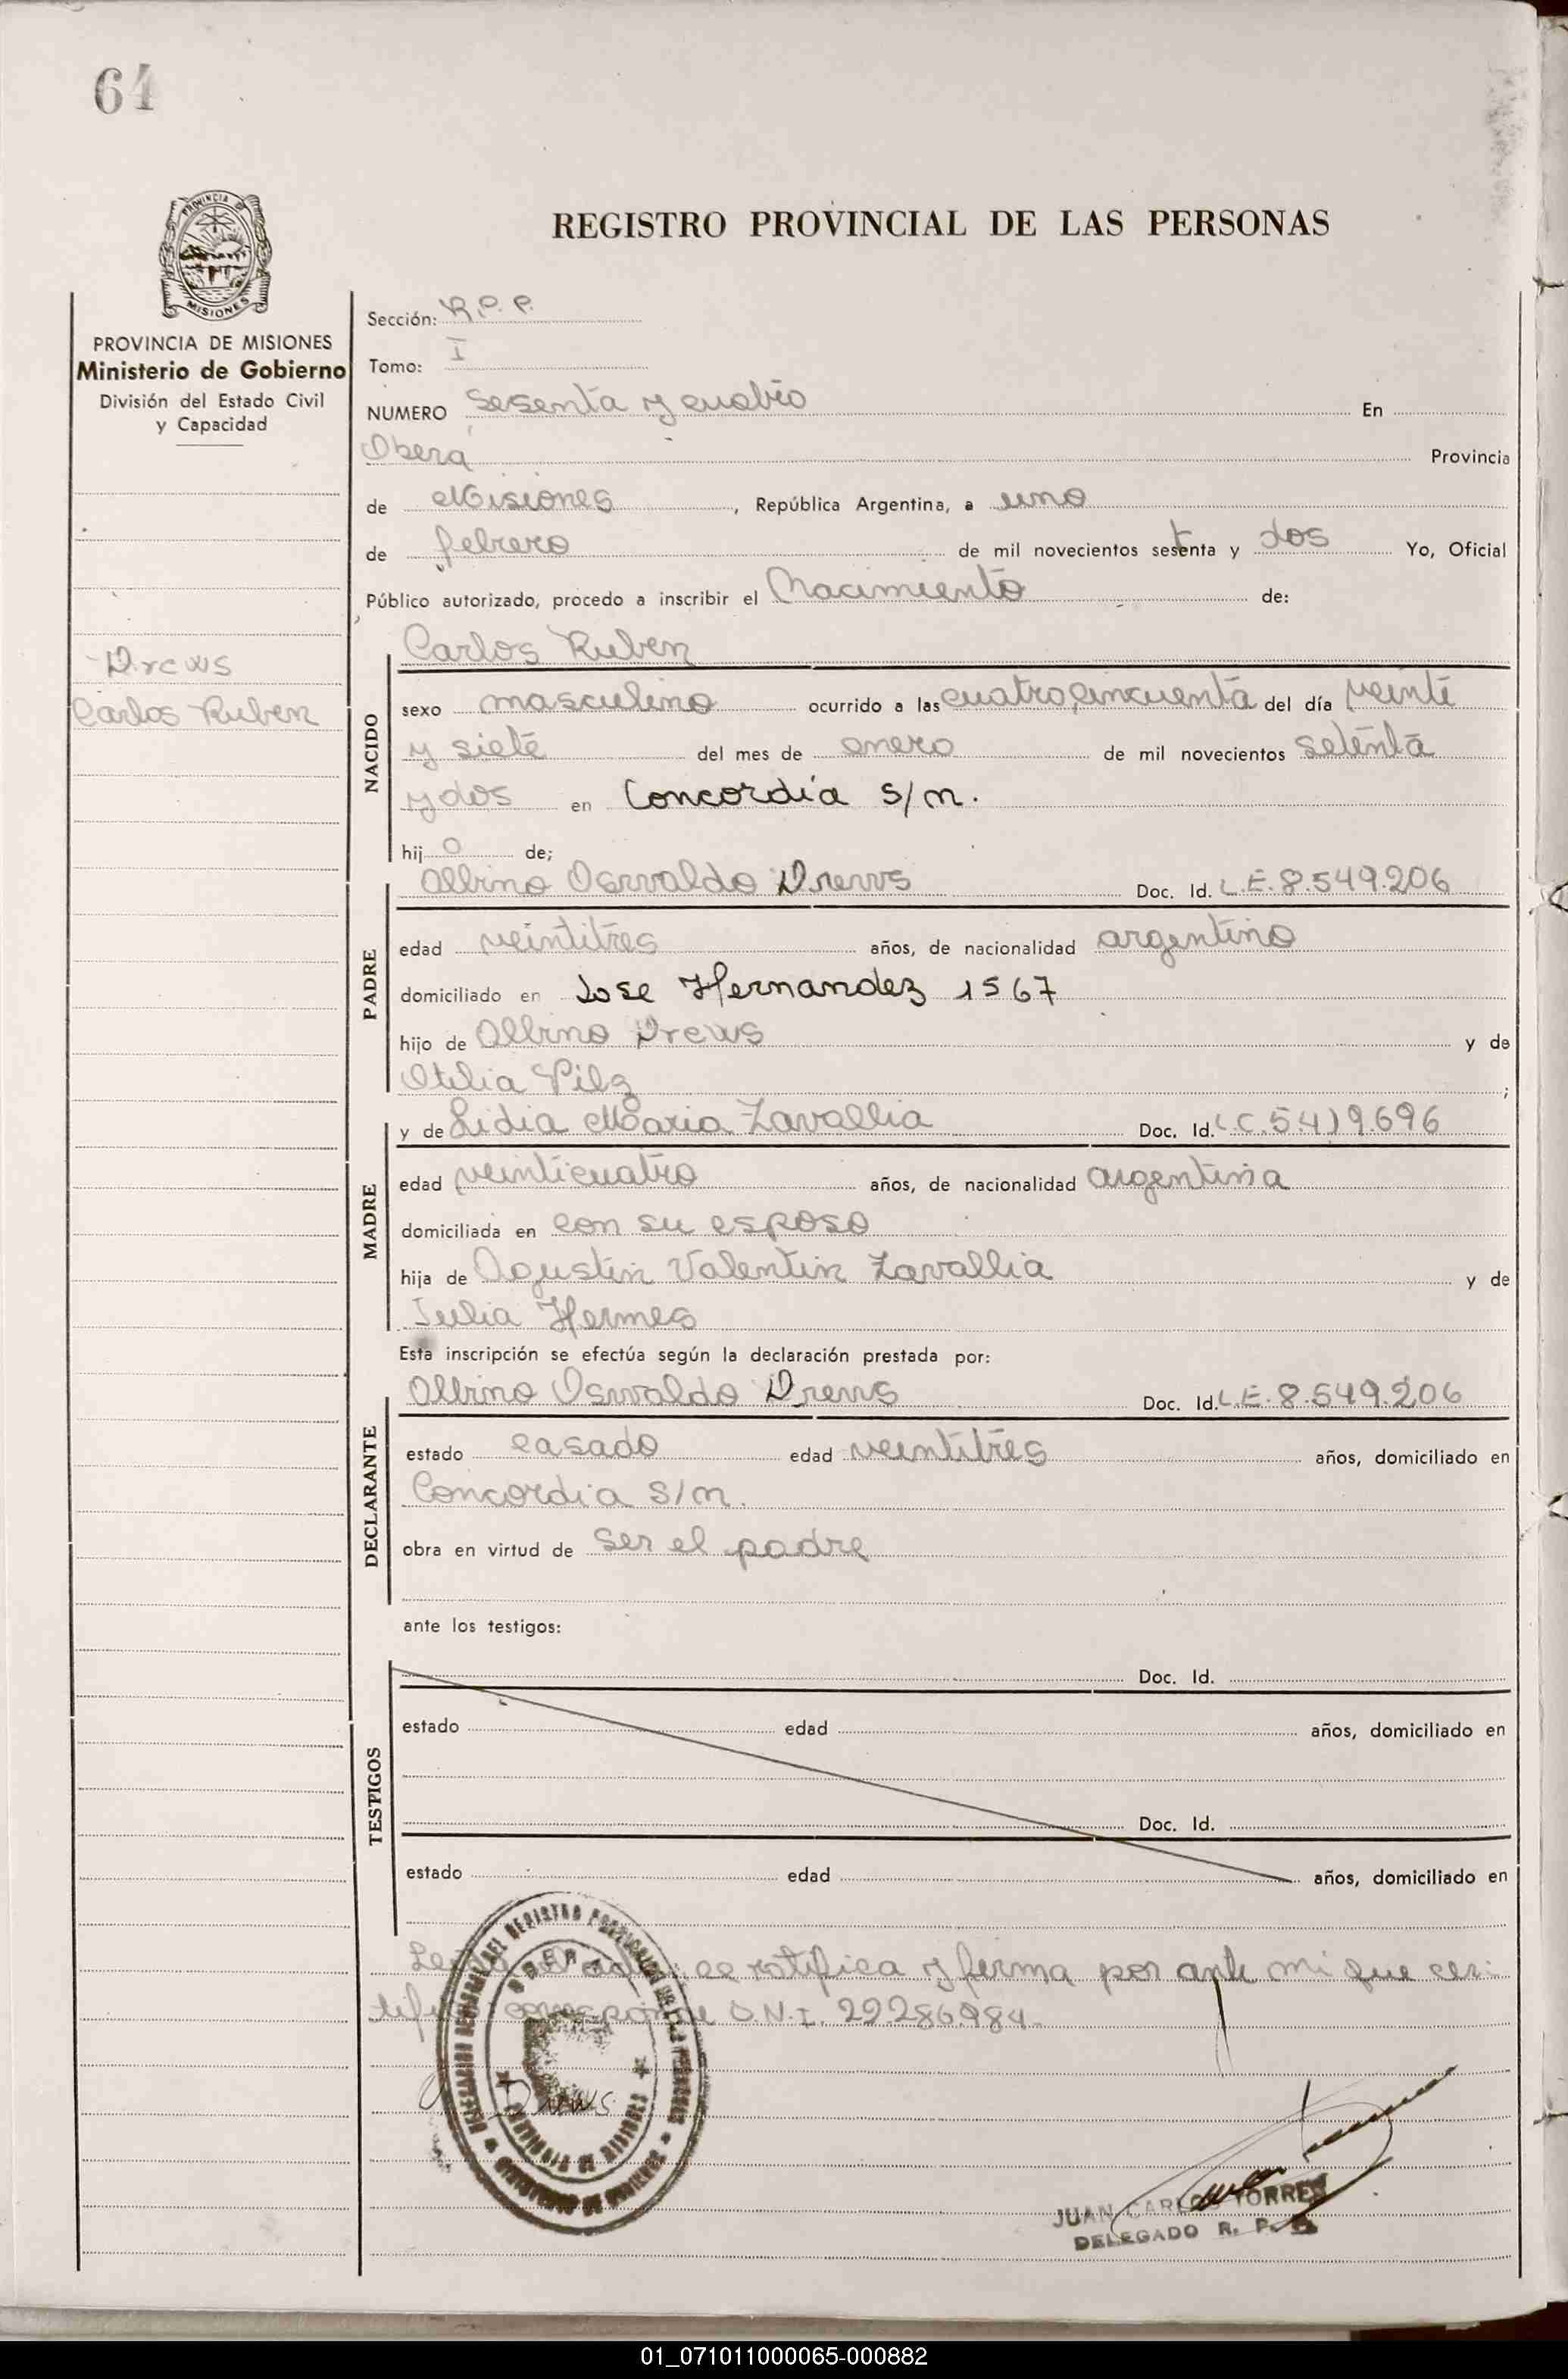 64
PROVINCIA DE
MISIONES
PROVINCIA DE MISIONES
Ministerio de Gobierno
División del Estado Civil
y Capacidad
Drews
Carlos Ruben
REGISTRO PROVINCIAL DE LAS PERSONAS
Sección: R.P.P.
Tomo: I
NUMERO Sesenta y cuatro En
Obera Provincia
de Misiones, República Argentina, a uno
de febrero de mil novecientos setenta y dos Yo, Oficial
Público autorizado, procedo a inscribir el Nacimiento de:
Carlos Ruben
NACIDO
sexo masculino ocurrido a las cuatro, cincuenta del día veinte
y siete del mes de enero de mil novecientos setenta
y dos en Concordia s/n.
hijo de;
Albino Osvaldo Drews Doc. Id. L.E. 8.549.206
PADRE
edad veintitres años, de nacionalidad argentino
domiciliado en Jose Hernandez 1567
hijo de Albino Drews y de
Otilia Pilz;
y de Lidia Maria Zavallia Doc. Id. L.C. 5.419.696
MADRE
edad veinticuatro años, de nacionalidad argentina
domiciliada en con su esposo
hija de Agustin Valentin Zavallia y de
Julia Hermes
Esta inscripción se efectúa según la declaración prestada por:
Albino Osvaldo Drews Doc. Id. L.E. 8.549.206
DECLARANTE
estado casado edad veintitres años, domiciliado en
Concordia s/n.
obra en virtud de ser el padre
ante los testigos:
TESTIGOS
Doc. Id.
estado edad años, domiciliado en
Doc. Id.
estado edad años, domiciliado en
Leida el acta, se ratifica y firma por ante mi que cer-
tifico: corresponde D.N.I. 22.286.984.-
Drews
JUAN CARLOS TORRES
DELEGADO R. P. P.
01_071011000065-000882